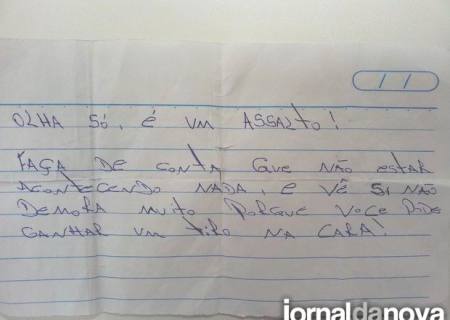 11
OLHA SÓ, É UM ASSALTO!
FAÇA DE CONTA QUE NÃO ESTAR
ACONTECENDO NADA, E VÊ SI NÃO
DEMORA MUITO PORQUE VOCE PODE
GANHAR UM TIRO NA CARA!
jornaldanova